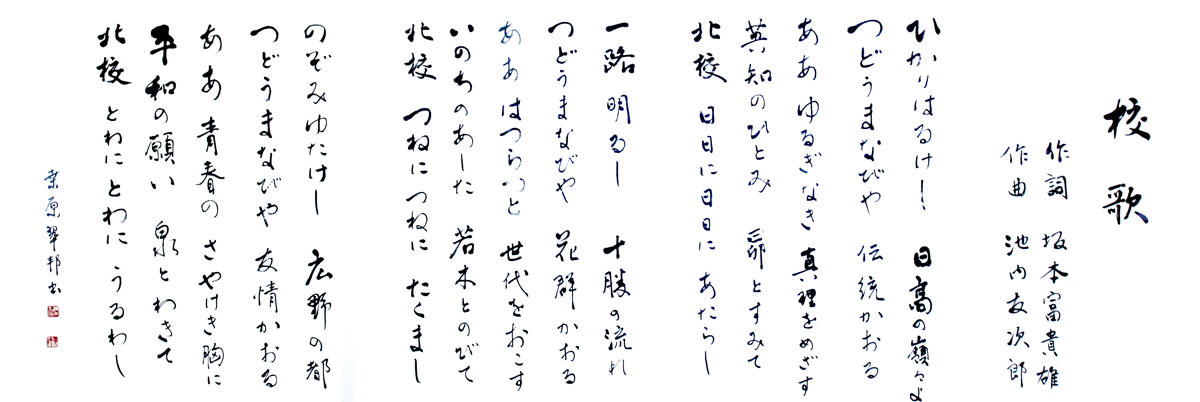 校歌
作詞 坂本富貴雄
作曲 池内友次郎
ひかりはるけし 日高の嶺々よ
つどうまなびや 伝統かおる
ああ ゆるぎなき 真理をめざす
英知のひとみ 昴とすみて
北校 日日に日日に あたらし
一路明るし 十勝の流れ
つどうまなびや 花群かおる
ああ はつらつと 世代をおこす
いのちのあした 若木とのびて
北校 つねにつねに たくまし
のぞみゆたけし 広野の都
つどうまなびや 友情かおる
ああ 青春の さやけき胸に
平和の願い 泉とわきて
北校 とわにとわに うるわし
桑原翠邦書